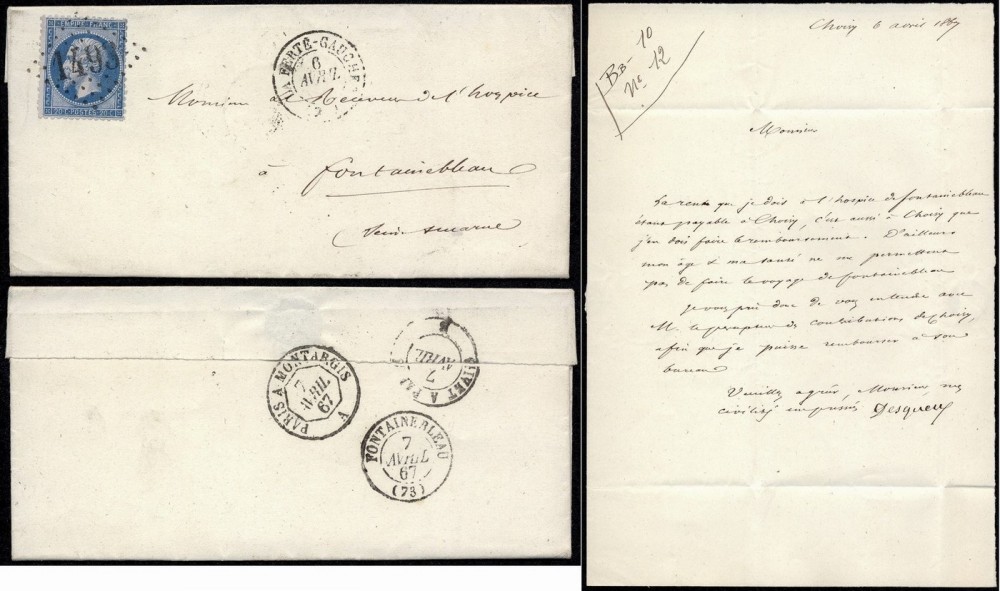 EMPIRE FRANC.
1493
20 C. POSTES 20 C.
LA FERTÉ-GAUCHER
6
AVRIL
Monsieur le Receveur de l'hospice
à fontainebleau
Seine & marne
PARIS A MONTARGIS
7
AVRIL
67
A
GIVET A PA
7
AVRIL
FONTAINEBLEAU
7
AVRIL
67
(73)
Choisy 6 avril 1867
BB- 10
N° 12
Monsieur
La rente que je dois à l'hospice de fontainebleau
étant payable à Choisy, c'est aussi à Choisy que
j'en dois faire le remboursement. D'ailleurs
mon âge & ma santé ne me permettent
pas de faire le voyage de fontainebleau
Je vous prie donc de vous entendre avec
M. le percepteur des contributions de Choisy,
afin que je puisse rembourser à son
bureau
Veuillez agréer, Monsieur, mes
civilités empressées Desqueux